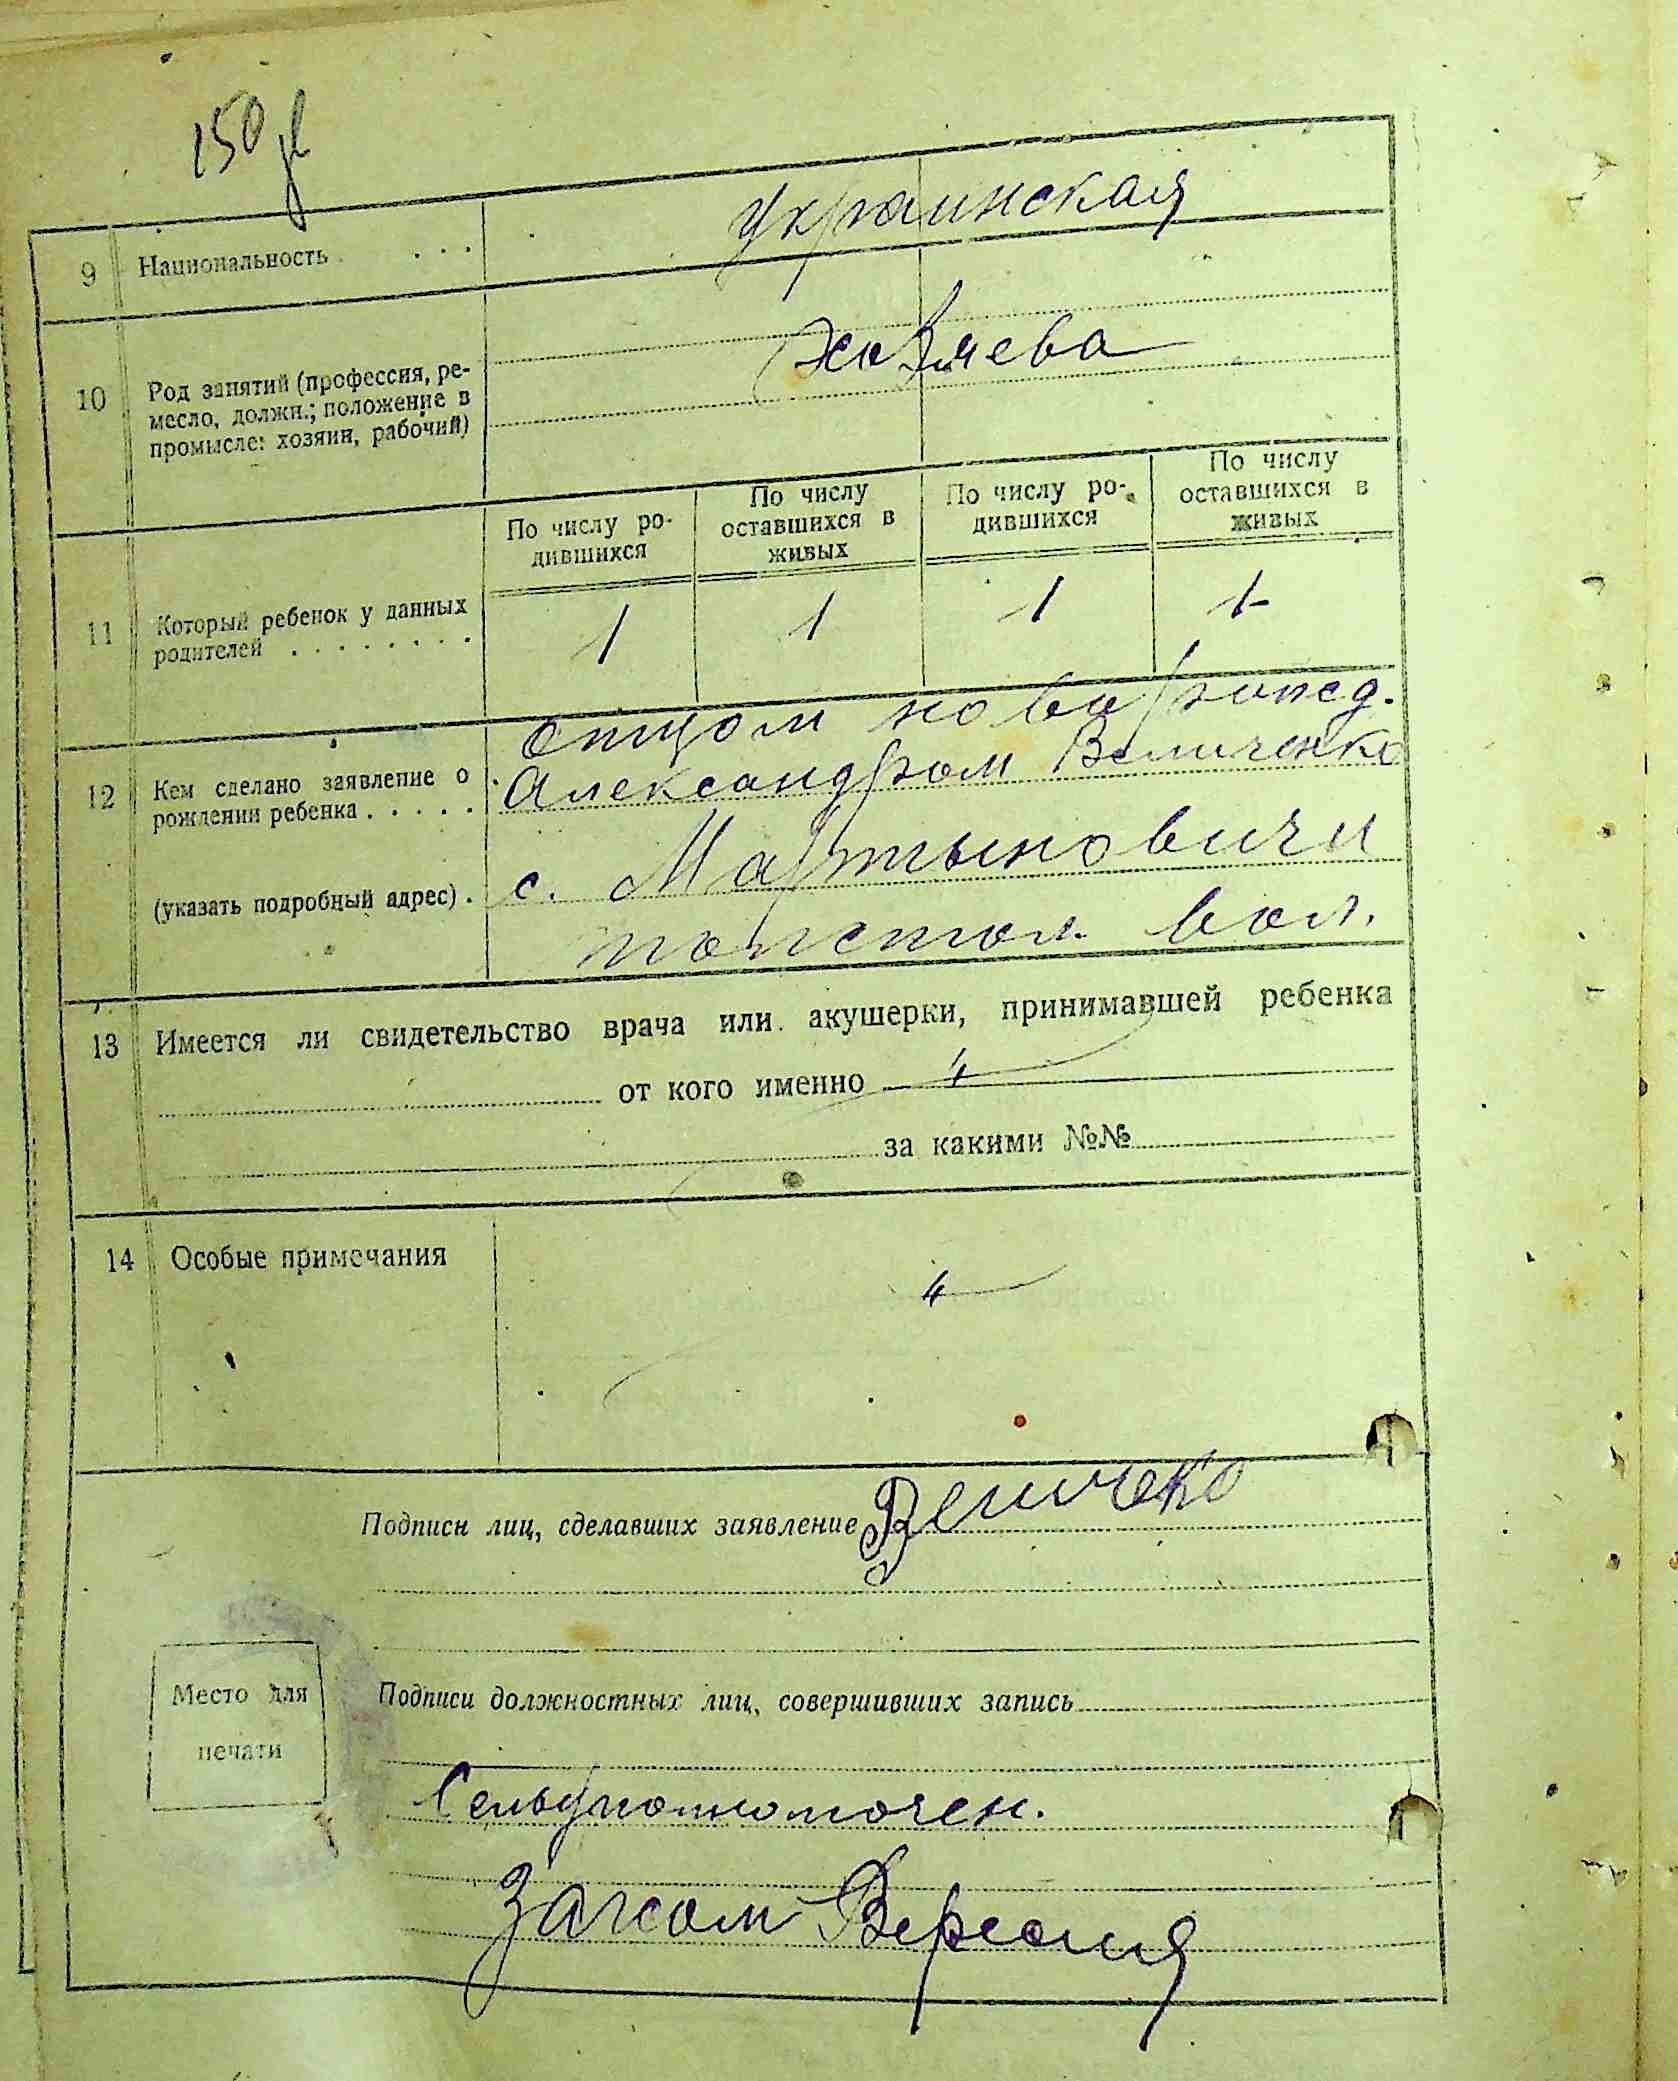 9 Национальность . . . . украинская
10 Род занятий (профессия, ре-
месло, должн.; положение в
промысле: хозяин, рабочий)
хозяева
По числу ро-
дившихся
По числу
оставшихся в
живых
По числу ро-
дившихся
По числу
оставшихся в
живых
11 Который ребенок у данных
родителей . . . . . . . .
1 1 1 1
12 Кем сделано заявление о
рождении ребенка . . . . .
(указать подробный адрес) .
отцом новорожд.
Александром Величенко
с. Мартыновичи
толстол. вол.
13 Имеется ли свидетельство врача или акушерки, принимавшей ребенка
от кого именно
за какими №№
14 Особые примечания
Подписи лиц, сделавших заявление Величко
Место для
печати
Подписи должностных лиц, совершивших запись
Сельуполномочен.
Загсом